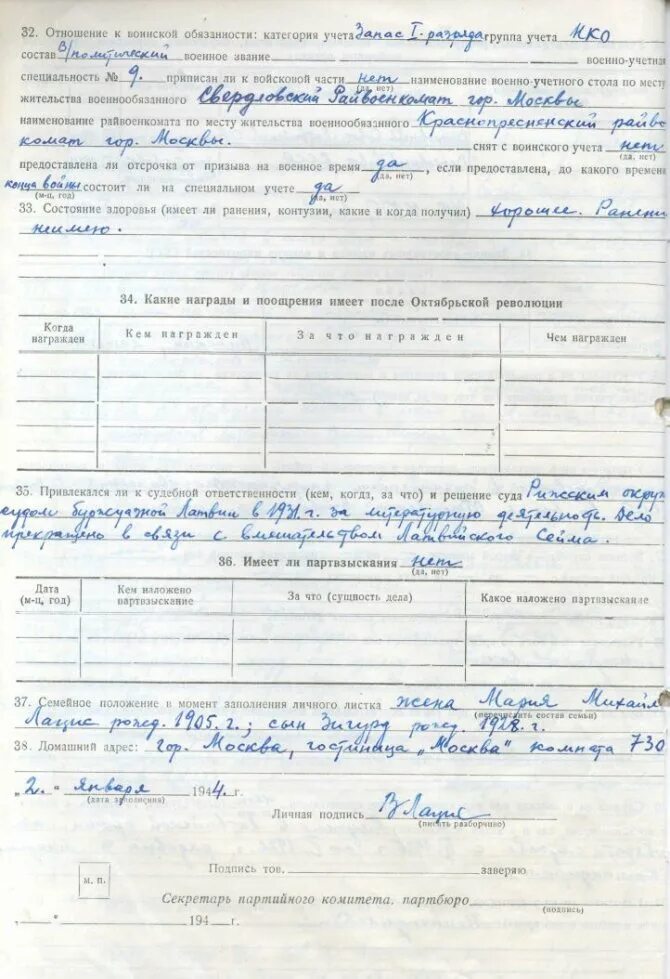 32. Отношение к воинской обязанности: категория учета Запас I-разряда группа учета НКО
состав В/политический военное звание военно-учетная
специальность № 9. приписан ли к войсковой части нет наименование военно-учетного стола по месту
(да, нет)
жительства военнообязанного Свердловский Райвоенкомат гор. Москвы
наименование райвоенкомата по месту жительства военнообязанного Краснопресненский райво
комат гор. Москвы. снят с воинского учета нет
(да, нет)
предоставлена ли отсрочка от призыва на военное время да, если предоставлена, до какого времени
(да, нет)
конца войны состоит ли на специальном учете да
(м-ц, год) (да, нет)
33. Состояние здоровья (имеет ли ранения, контузии, какие и когда получил) хорошее. Ранени
неимею.
34. Какие награды и поощрения имеет после Октябрьской революции
Когда награжден Кем награжден За что награжден Чем награжден
35. Привлекался ли к судебной ответственности (кем, когда, за что) и решение суда Рижским окруж
судом буржуазной Латвии в 1931 г. за литературную деятельность. Дело
прекращено в связи с вмешательством Латвийского Сейма.
36. Имеет ли партвзыскания нет
(да, нет)
Дата (м-ц, год) Кем наложено партвзыскание За что (сущность дела) Какое наложено партвзыскание
37. Семейное положение в момент заполнения личного листка жена Мария Михайл
(перечислить состав семьи)
Лацис рожд. 1905 г.; сын Зигурд рожд. 1928 г.
38. Домашний адрес: гор. Москва, гостиница „Москва" комната 730
„2." Января 1944 г.
(дата заполнения)
Личная подпись ВЛацис
(писать разборчиво)
Подпись тов. заверяю
м. п.
Секретарь партийного комитета, партбюро
(подпись)
„ " 194 г.